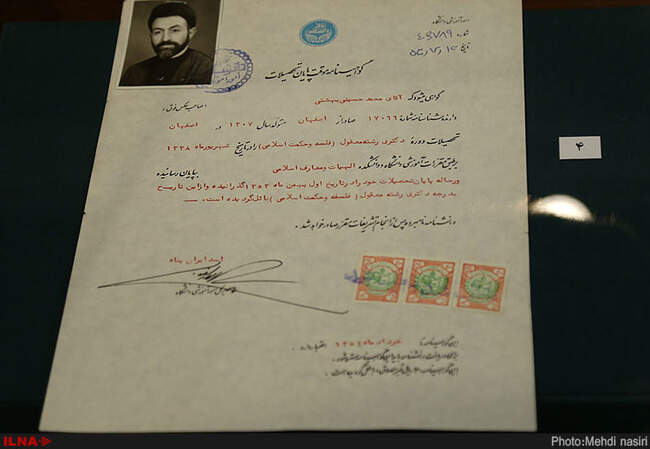 واحد آموزشی دانشگاه
شماره ۴۰۷۸۹
تاریخ
گواهینامه موقت پایان تحصیلات
گواهی میشود که آقای محمد حسینی بهشتی (صاحب عکس فوق)
دارنده شناسنامه شماره ۱۷۰۶۶ صادر از اصفهان متولد سال ۱۳۰۷ در اصفهان
تحصیلات دوره دکتری رشته معقول (فلسفه و حکمت اسلامی) را در تاریخ شهریور ماه ۱۳۳۸
برطبق مقررات آموزشی دانشگاه و دانشکده الهیات و معارف اسلامی بپایان رسانیده
و رساله پایان تحصیلات خود را در تاریخ اول بهمن ماه ۱۳۵۳ گذرانیده و از این تاریخ
بدرجه دکتری رشته معقول (فلسفه و حکمت اسلامی) نائل گردیده است.
دانشنامه نامبرده پس از انجام تشریفات مقرر صادر خواهد شد.
ایران پناه
این گواهینامه تا خرداد ماه ۱۳۵۴ اعتبار دارد.
۴
ILNA
Photo:Mehdi nasiri